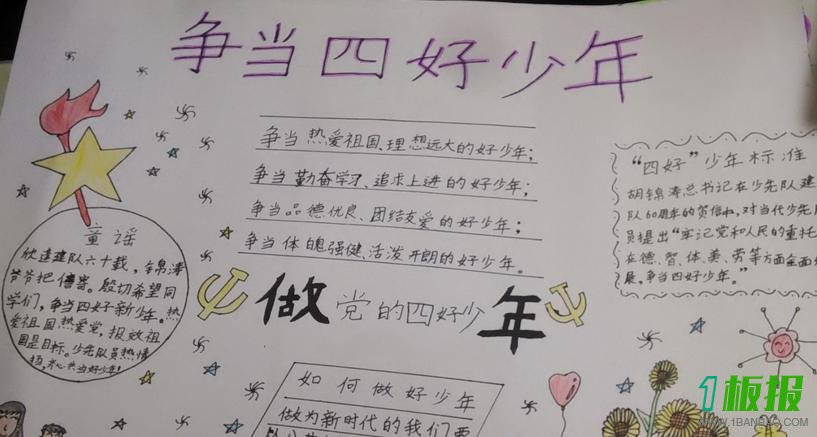 争当四好少年
争当热爱祖国、理想远大的好少年；
争当勤奋学习、追求上进的好少年；
争当品德优良、团结友爱的好少年；
争当体魄强健、活泼开朗的好少年。
童谣
欣逢建队六十载，锦涛
爷爷把信寄。殷切希望同
学们，争当四好新少年。热
爱祖国热爱党，报效祖
国是目标。少先队员热情
当好少年！
做党的四好少年
“四好”少年标准
胡锦涛总书记在少先队建
队60周年的贺信中，对当代少先队
员提出“牢记党和人民的重托
在德、智、体、美、劳等方面全面
展。争当四好少年。”
如何做好少年
做为新时代的我们要
1板报
WWW.1BANBAO.COM